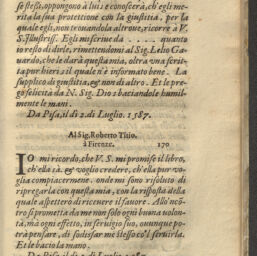 se stessi, oppongono à lui: e conoscerà, ch'egli me-
rita la sua protettione con la giustitia, per la
quale egli, non trouandola altroue, ricorre à V.
S. Illustriss. Egli mi scriue da .... quanto
io resto di dirle, rimettendomi al Sig. Lelio Ga-
uardo, che le darà questa mia, oltra vna scrit-
ta pur hieri; il quale n'è informato bene. La
supplico di giustitia, & non di altro. Et le pre-
go felicità da N. Sig. Dio; basciandole humil-
mente le mani.
Da Pisa, il dì 2. di Luglio. 1587.
Al Sig. Roberto Titio.
à Firenze. 170
IO mi ricordo, che V. S. mi promise il libro,
ch'ella sà. & voglio credere, ch'ella pur vo-
glia compiacermene. onde mi sono risoluto di
ripregarla con questa mia, con la risposta della
quale aspetterò di riceuere il fauore. All'ncō-
tro si prometta da me non solo ogni buona volon-
tà, mà ogni effetto, in seruigio suo, ounque po-
trà pensare, di sodisfar me stesso co'l seruirla.
Et le bacio la mano.
Da Pisa, il dì 2. di Luglio. 1587.